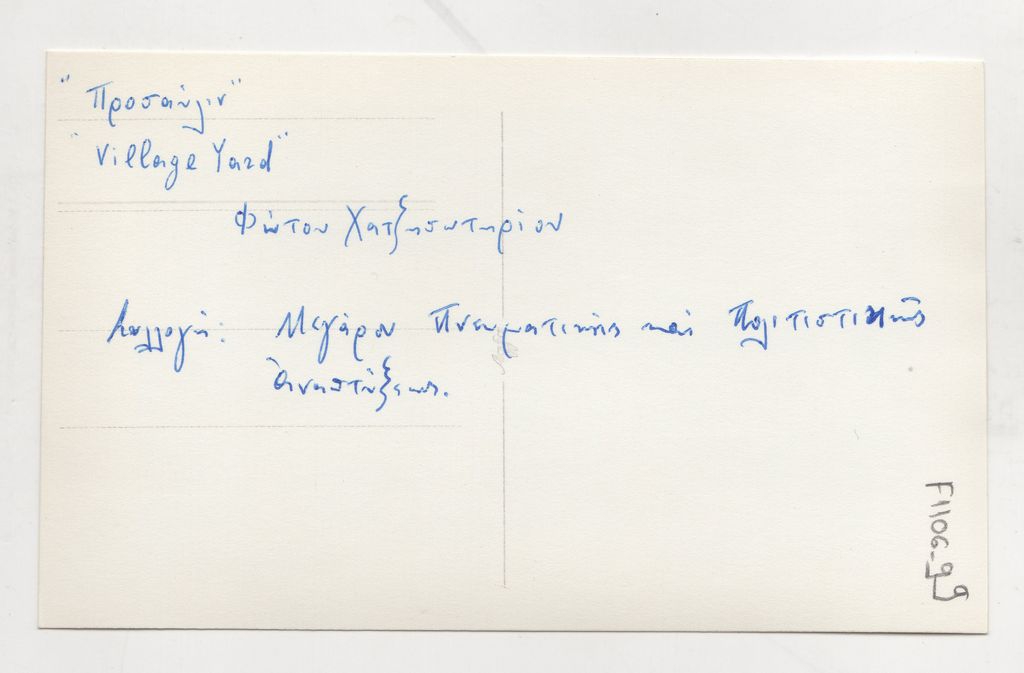 "Προσαύλιν"
"Village Yard"
Φώτου Χατζησωτηρίου
Συλλογή: Μεγάρου Πνευματικής καί Πολιτιστικῆς
Ἀναπτύξεως.
F1106-99